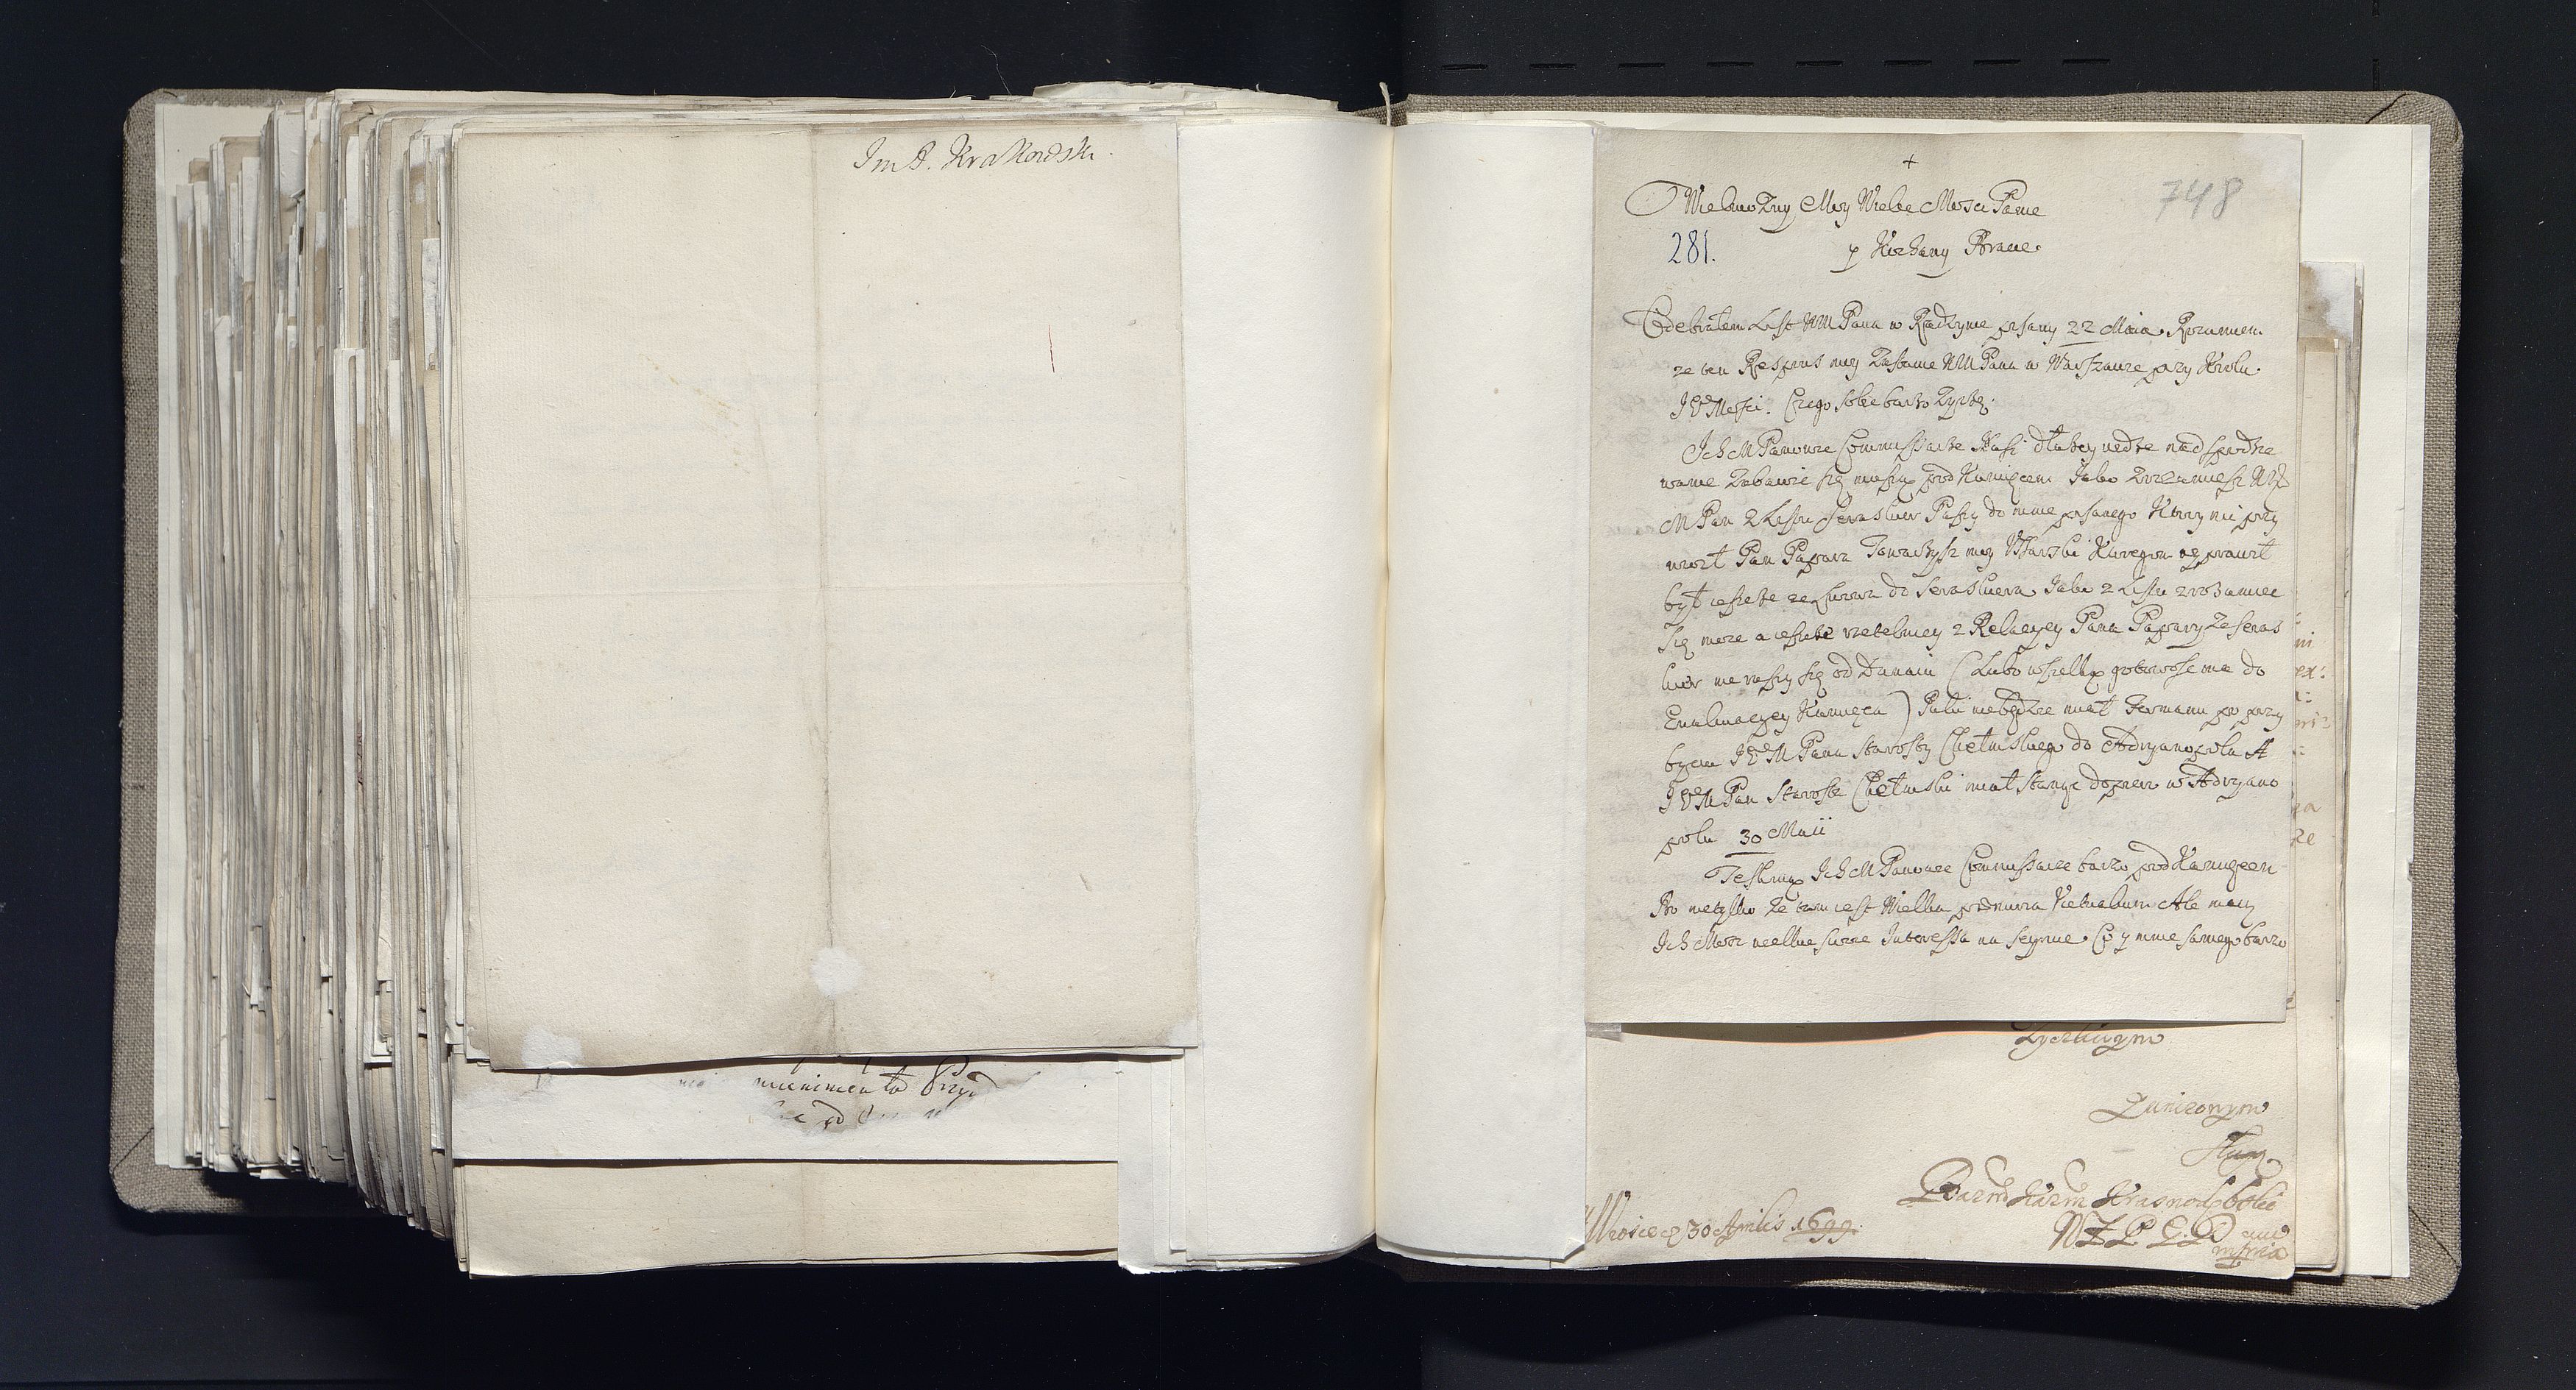 Im P. Krakowski.
+
Wielmożny Moy Wielce Mosci Panie
748
281.
y Kochany Bracie.
Odebrałem List WM Pana w Radzynie pisany 22 Maia. Rozumiem
ze ten Respons moy zastanie WM Pana w Warszawie przy Krolu
J Mosci. Czego sobie barzo zyczę.
Ich M Panowie Commissarze Nasi dłuzey nedze nad spodzie
wanie zabawic się muszą pod Kamięcem Jako zrozumiesz W
M Pan z Listu Seraskier Paszy do mnie pisanego Ktory mi przy
wiozł Pan Papara Towarzysz moy Usarski Ktoregom wyprawił
był ieszcze ze Lwowa do Seraskiera Jako z Listu zrozumiec
się moze a ieszcze rzetelniey z Relacyey Pana Papary ze Seras
kier nie ruszy się od Dunaiu (Lubo wszelką gotowosc ma do
Ewakuacyey Kamięca) Poki niebędzie miał Fermanu po przy
byciu J M Pana Starosty Chełmskiego do Adryanopolu A
J M Pan Starosta Chełmski miał stanąc dopiero w Adryano
polu 30 Maii
Tesknią Ich M Panowie Commissarze barzo pod Kamięcem
Bo nietylko ze tam iest Wielka penuria Victualium Ale maią
Ich Mosc wielkie swoie Interessa na Seymie. Co y mnie samego barzo
munimenta
Zyczliwym
Zunizonym
Sługą
Kazm Krasnodębski
30 Aprilis 1699.
mpria